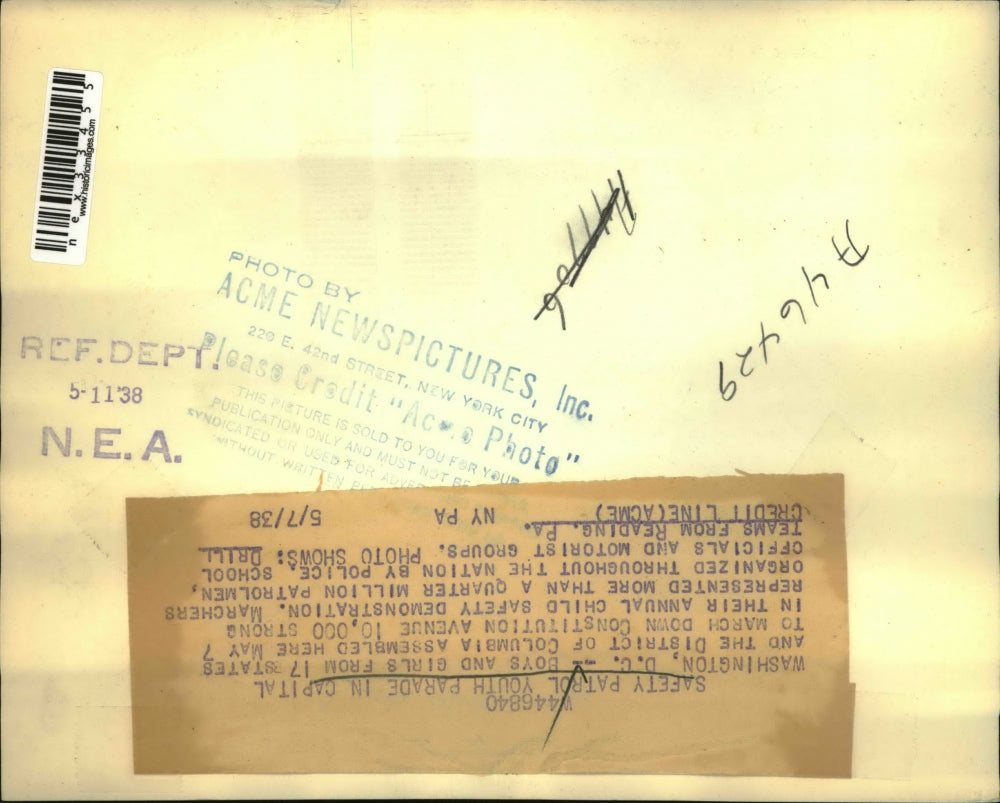 n e x 3 3 4 5 5
www.historicimages.com
PHOTO BY
ACME NEWSPICTURES, Inc.
220 E. 42nd STREET, NEW YORK CITY
Please Credit "Acme Photo"
THIS PICTURE IS SOLD TO YOU FOR YOUR
PUBLICATION ONLY AND MUST NOT BE
SYNDICATED OR USED FOR
WITHOUT WRITTEN
REF. DEPT.
5-11'38
N.E.A.
A46429
W446840
SAFETY PATROL YOUTH PARADE IN CAPITAL
WASHINGTON, D.C. -- BOYS AND GIRLS FROM 17 STATES
AND THE DISTRICT OF COLUMBIA ASSEMBLED HERE MAY 7
TO MARCH DOWN CONSTITUTION AVENUE 10,000 STRONG
IN THEIR ANNUAL CHILD SAFETY DEMONSTRATION. MARCHERS
REPRESENTED MORE THAN A QUARTER MILLION PATROLMEN,
ORGANIZED THROUGHOUT THE NATION BY POLICE, SCHOOL
OFFICIALS AND MOTORIST GROUPS. PHOTO SHOWS: DRILL
TEAMS FROM READING, PA.
CREDIT LINE(ACME) NY PA 5/7/38